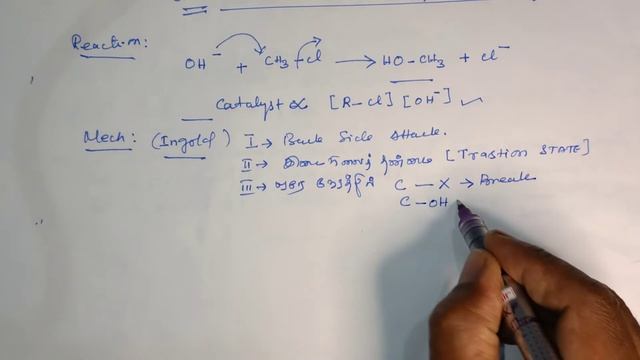 Reaction:
OH⁻ + CH₃-Cl ⟶ HO-CH₃ + Cl⁻
Catalyst ∝ [R-Cl] [OH⁻]
Mech: (Ingold) I → Back Side Attack.
II → இடைநிலைத் தன்மை [Trastion STATE]
III → ஒரே நேரத்தில் C - X → Break
C - OH